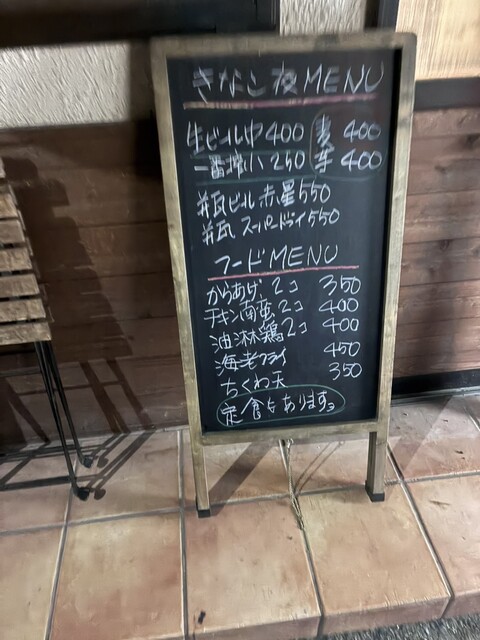 きなこ夜MENU
生ビール中 400 麦 400
一番搾り小 250 芋 400
瓶ビール赤星 550
瓶 スーパードライ 550
フードMENU
からあげ 2コ 350
チキン南蛮 2コ 400
油淋鶏 2コ 400
海老フライ 450
ちくわ天 350
定食もあります